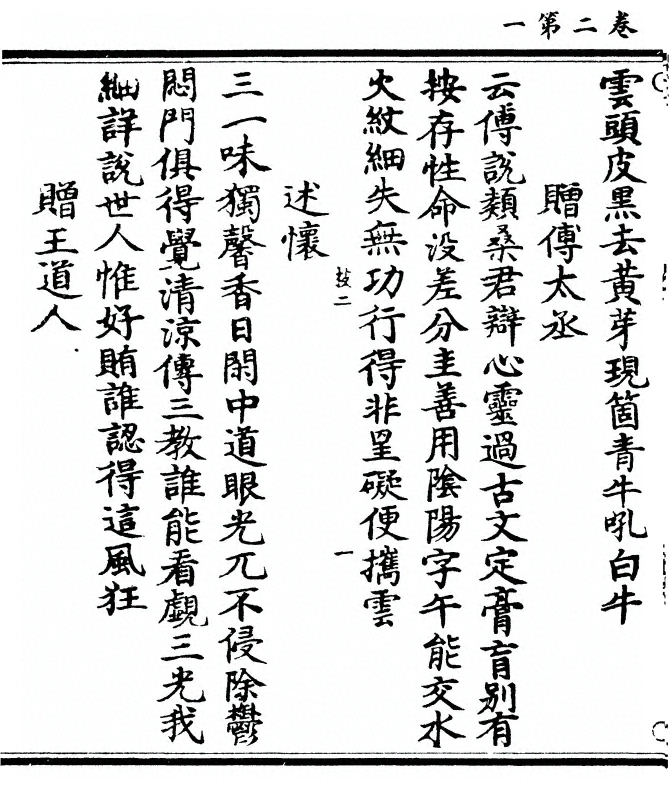 卷二第一
雲頭皮黑去黃芽現箇青牛吼白牛
贈傅太丞
云傅說類桑君辯心靈過古文定膏肓別有
按存性命没差分主善用陰陽字午能交水
火紋細失無功行得非罣礙便攜雲
敲二
一
述懷
三一味獨馨香日閑中道眼光兀不侵除鬱
悶門俱得覺清涼傳三教誰能看覷三光我
細詳說世人惟好賄誰認得這風狂
贈王道人